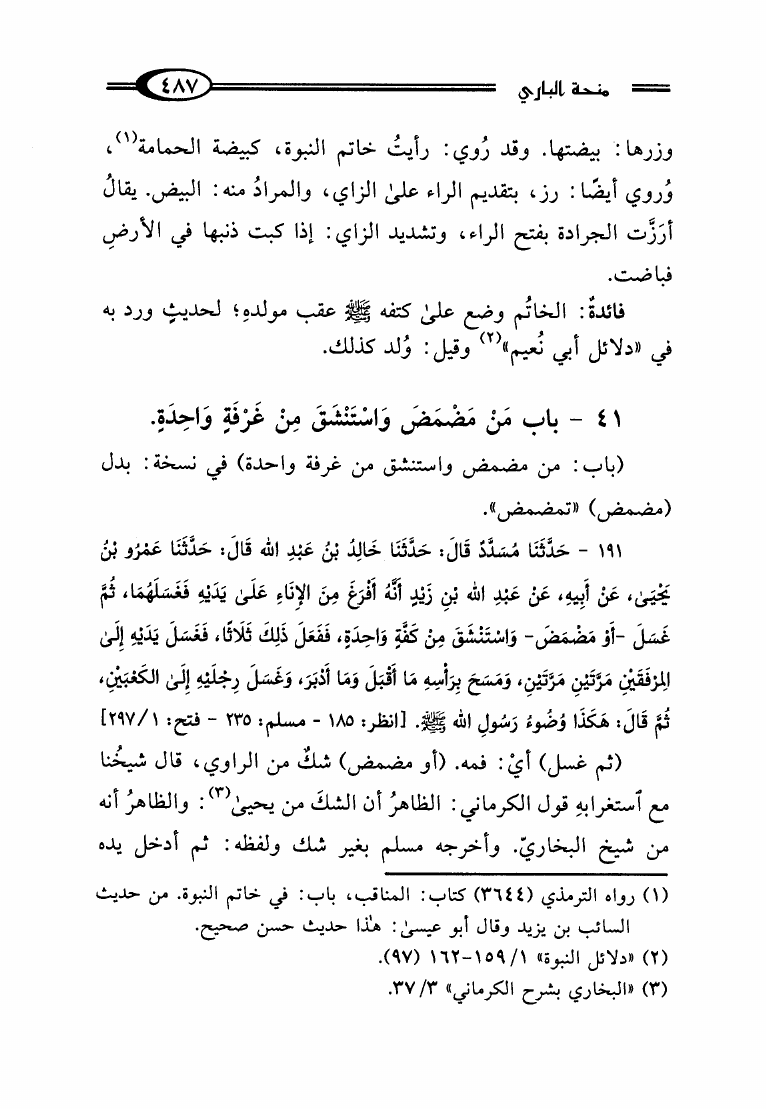 منحة الباري
٤٨٧
وزرها: بيضتها. وقد رُوي: رأيتُ خاتم النبوة، كبيضة الحمامة(١)،
وُروي أيضًا: رز، بتقديم الراء علىٰ الزاي، والمرادُ منه: البيض. يقالُ
أرَزَّت الجرادة بفتح الراء، وتشديد الزاي: إذا كبت ذنبها في الأرضِ
فباضت.
فائدةٌ: الخاتُم وضع علىٰ كتفه ﷺ عقب مولدهِ؛ لحديثٍ ورد به
في «دلائل أبي نُعيم»(٢) وقيل: وُلد كذلك.
٤١ - باب مَنْ مَضْمَضَ وَاسْتَنْشَقَ مِنْ غَرْفَةٍ وَاحِدَةٍ.
(باب: من مضمض واستنشق من غرفة واحدة) في نسخة: بدل
(مضمض) «تمضمض».
١٩١ - حَدَّثَنَا مُسَدَّدٌ قَالَ: حَدَّثَنَا خَالِدُ بْنُ عَبْدِ الله قَالَ: حَدَّثَنَا عَمْرُو بْنُ
يَحْيَىٰ، عَنْ أَبِيهِ، عَنْ عَبْدِ الله بْنِ زَيْدٍ أَنَّهُ أَفْرَغَ مِنَ الإِنَاءِ عَلَىٰ يَدَيْهِ فَغَسَلَهُمَا، ثُمَّ
غَسَلَ -أَوْ مَضْمَضَ- وَاسْتَنْشَقَ مِنْ كَفَّةٍ وَاحِدَةٍ، فَفَعَلَ ذَلِكَ ثَلَاثًا، فَغَسَلَ يَدَيْهِ إِلَىٰ
المِرْفَقَيْنِ مَرَّتَيْنِ مَرَّتَيْنِ، وَمَسَحَ بِرَأْسِهِ مَا أَقْبَلَ وَمَا أَدْبَرَ، وَغَسَلَ رِجْلَيْهِ إِلَىٰ الكَعْبَيْنِ،
ثُمَّ قَالَ: هَكَذَا وُضُوءُ رَسُولِ الله ﷺ. [انظر: ١٨٥ - مسلم: ٢٣٥ - فتح: ١/ ٢٩٧]
(ثم غسل) أيْ: فمه. (أو مضمض) شكٌ من الراوي، قال شيخُنا
مع ٱستغرابهِ قول الكرماني: الظاهرُ أن الشكَ من يحيىٰ(٣): والظاهرُ أنه
من شيخ البخاريّ. وأخرجه مسلم بغير شك ولفظه: ثم أدخل يده
(١) رواه الترمذي (٣٦٤٤) كتاب: المناقب، باب: في خاتم النبوة. من حديث
السائب بن يزيد وقال أبو عيسىٰ: هٰذا حديث حسن صحيح.
(٢) «دلائل النبوة» ١/ ١٥٩-١٦٢ (٩٧).
(٣) «البخاري بشرح الكرماني» ٣/ ٣٧.